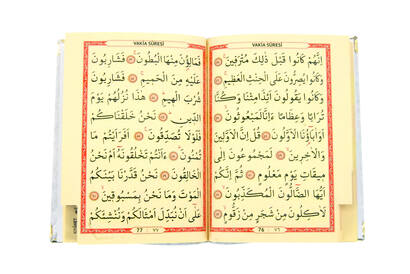 VAKİA SÛRESİ
اِنَّهُمْ كَانُوا قَبْلَ ذٰلِكَ مُتْرَفٖينَ
وَكَانُوا يُصِرُّونَ عَلَى الْحِنْثِ الْعَظٖيمِ
وَكَانُوا يَقُولُونَ اَئِذَا مِتْنَا وَكُنَّا
تُرَابًا وَعِظَامًا ءَاِنَّا لَمَبْعُوثُونَ
اَوَاٰبَاؤُنَا الْاَوَّلُونَ قُلْ اِنَّ الْاَوَّلٖينَ
وَالْاٰخِرٖينَ لَمَجْمُوعُونَ اِلٰى
مٖيقَاتِ يَوْمٍ مَعْلُومٍ ثُمَّ اِنَّكُمْ
اَيُّهَا الضَّالُّونَ الْمُكَذِّبُونَ
لَاٰكِلُونَ مِنْ شَجَرٍ مِنْ زَقُّومٍ
76 ٧٦
VAKİA SÛRESİ
فَمَالِؤُنَ مِنْهَا الْبُطُونَ فَشَارِبُونَ
عَلَيْهِ مِنَ الْحَمٖيمِ فَشَارِبُونَ
شُرْبَ الْهٖيمِ هٰذَا نُزُلُهُمْ يَوْمَ
الدّٖينِ نَحْنُ خَلَقْنَاكُمْ
فَلَوْلَا تُصَدِّقُونَ اَفَرَاَيْتُمْ مَا
تُمْنُونَ ءَاَنْتُمْ تَخْلُقُونَهُ اَمْ نَحْنُ
الْخَالِقُونَ نَحْنُ قَدَّرْنَا بَيْنَكُمُ
الْمَوْتَ وَمَا نَحْنُ بِمَسْبُوقٖينَ
عَلٰى اَنْ نُبَدِّلَ اَمْثَالَكُمْ وَنُنْشِئَكُمْ
77 ٧٧